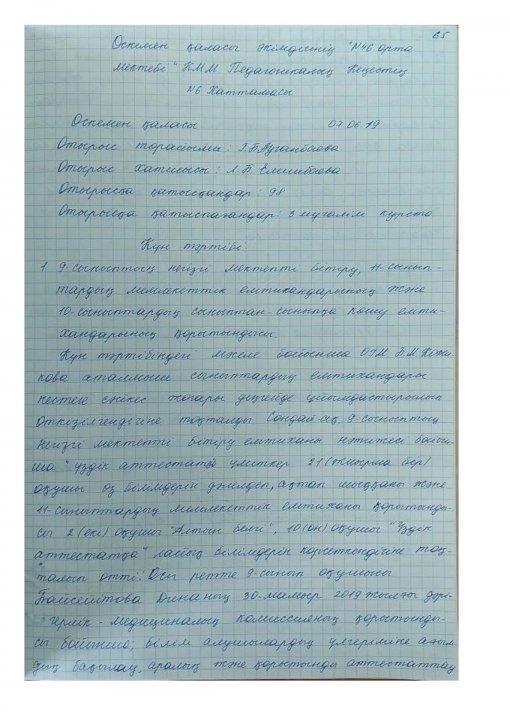 65
Өскемен қаласы әкімдігінің "№46 орта
мектебі" КММ Педагогикалық Кеңестің
№6 Хаттамасы
Өскемен қаласы 07.06.19
Отырыс төрайымы:
Отырыс хатшысы: Л.Б.
Отырысқа қатысқандар: 98
Отырысқа қатыспағандар: 3 мұғалім курста
Күн тәртібі:
1. 9-сыныптың негізгі мектепті бітіру, 11-сынып-
тардың мемлекеттік емтихандарының және
10-сыныптардың сыныптан-сыныпқа көшу емти-
хандарының қорытындысы.
Күн тәртібіндегі мәселе бойынша Б.М.Кожи-
кова аталмыш сыныптардың емтихандары
кестеге сәйкес жоғары деңгейде ұйымдастырылып
өткізілгендігіне тоқталды. Сондай-ақ, 9-сыныптың
негізгі мектепті бітіру емтиханы нәтижесі бойын-
ша "үздік аттестатқа үміткер 21 (жиырма бір)
оқушы өз білімдерін дәлелдеп, ақтап шыққаны және
11-сыныптардың мемлекеттік емтиханы қорытынды-
сы 2 (екі) оқушы "Алтын белгі", 10 (он) оқушы "Үздік
аттестатқа" лайық білімдерін көрсеткендігіне тоқ-
талып өтті. Осы ретте 9-сынып оқушысы
Байсейітова Динаның 30-мамыр 2019 жылғы дәрі-
герлік-медициналық комиссияның қорытынды-
сы бойынша; білім алушылардың үлгеріміне ағым-
дық бақылау, аралық және қорытынды аттестаттау